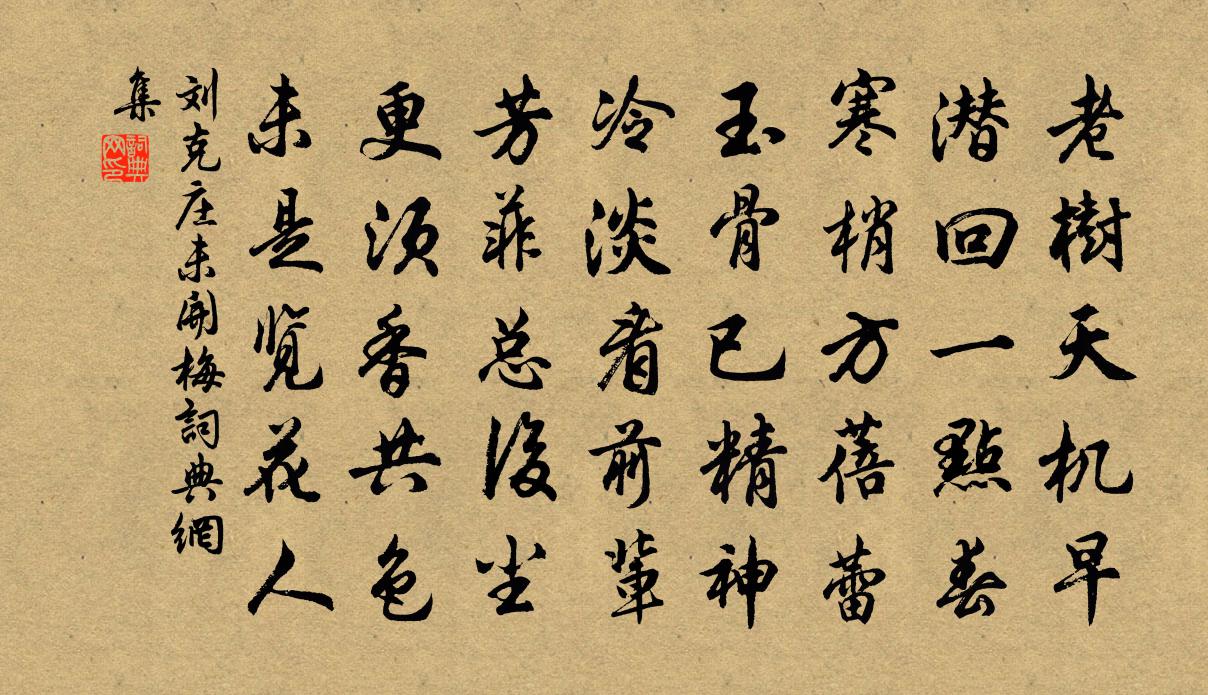 老樹天机早
潜回一點春
寒梢方蓓蕾
玉骨已精神
冷淡看前輩
芳菲总後尘
更须香共色
未是览花人
刘克庄未開梅詞典網
集
詞典
网印